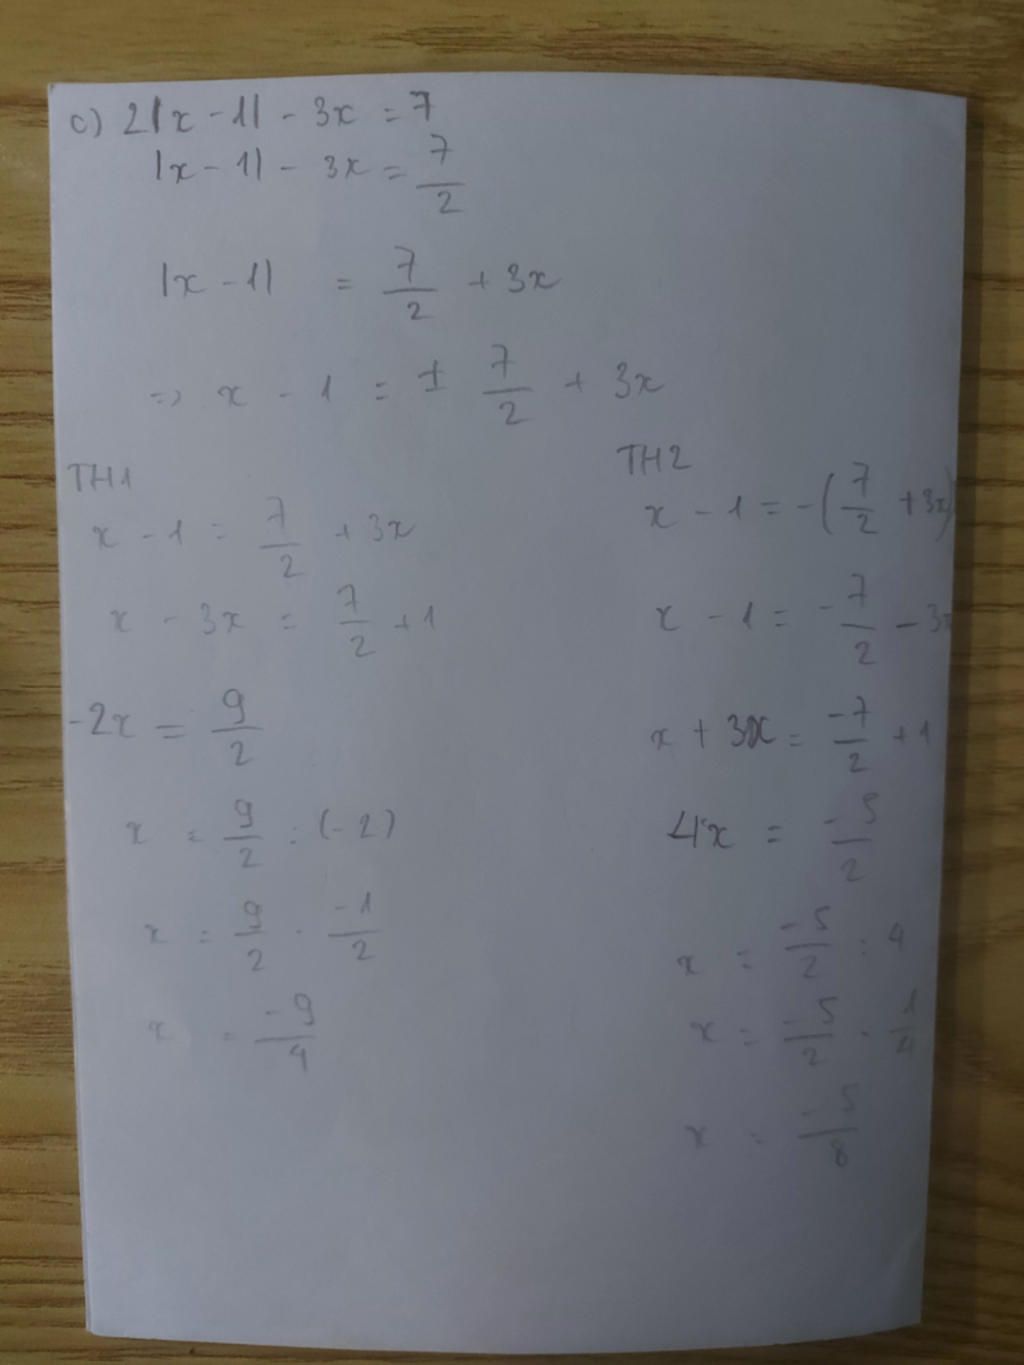 c) 2|x - 1| - 3x = 7
|x - 1| - 3x = 7/2
|x - 1| = 7/2 + 3x
=> x - 1 = ± 7/2 + 3x
TH1
x - 1 = 7/2 + 3x
x - 3x = 7/2 + 1
-2x = 9/2
x = 9/2 : (-2)
x = 9/2 . -1/2
x = -9/4
TH2
x - 1 = -(7/2 + 3x)
x - 1 = -7/2 - 3x
x + 3x = -7/2 + 1
4x = -5/2
x = -5/2 : 4
x = -5/2 . 1/4
x = -5/8